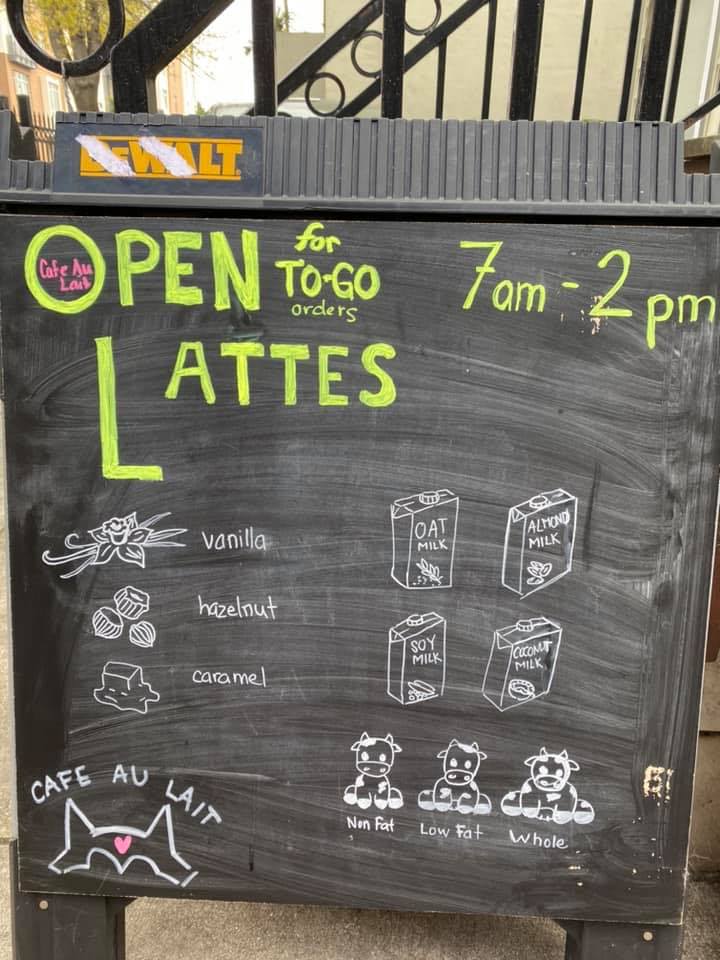 DEWALT
OPEN for TO-GO orders 7am - 2pm
Cafe Au Lait
LATTES
vanilla
hazelnut
caramel
OAT MILK
ALMOND MILK
SOY MILK
COCONUT MILK
Non Fat
Low Fat
Whole
CAFE AU LAIT